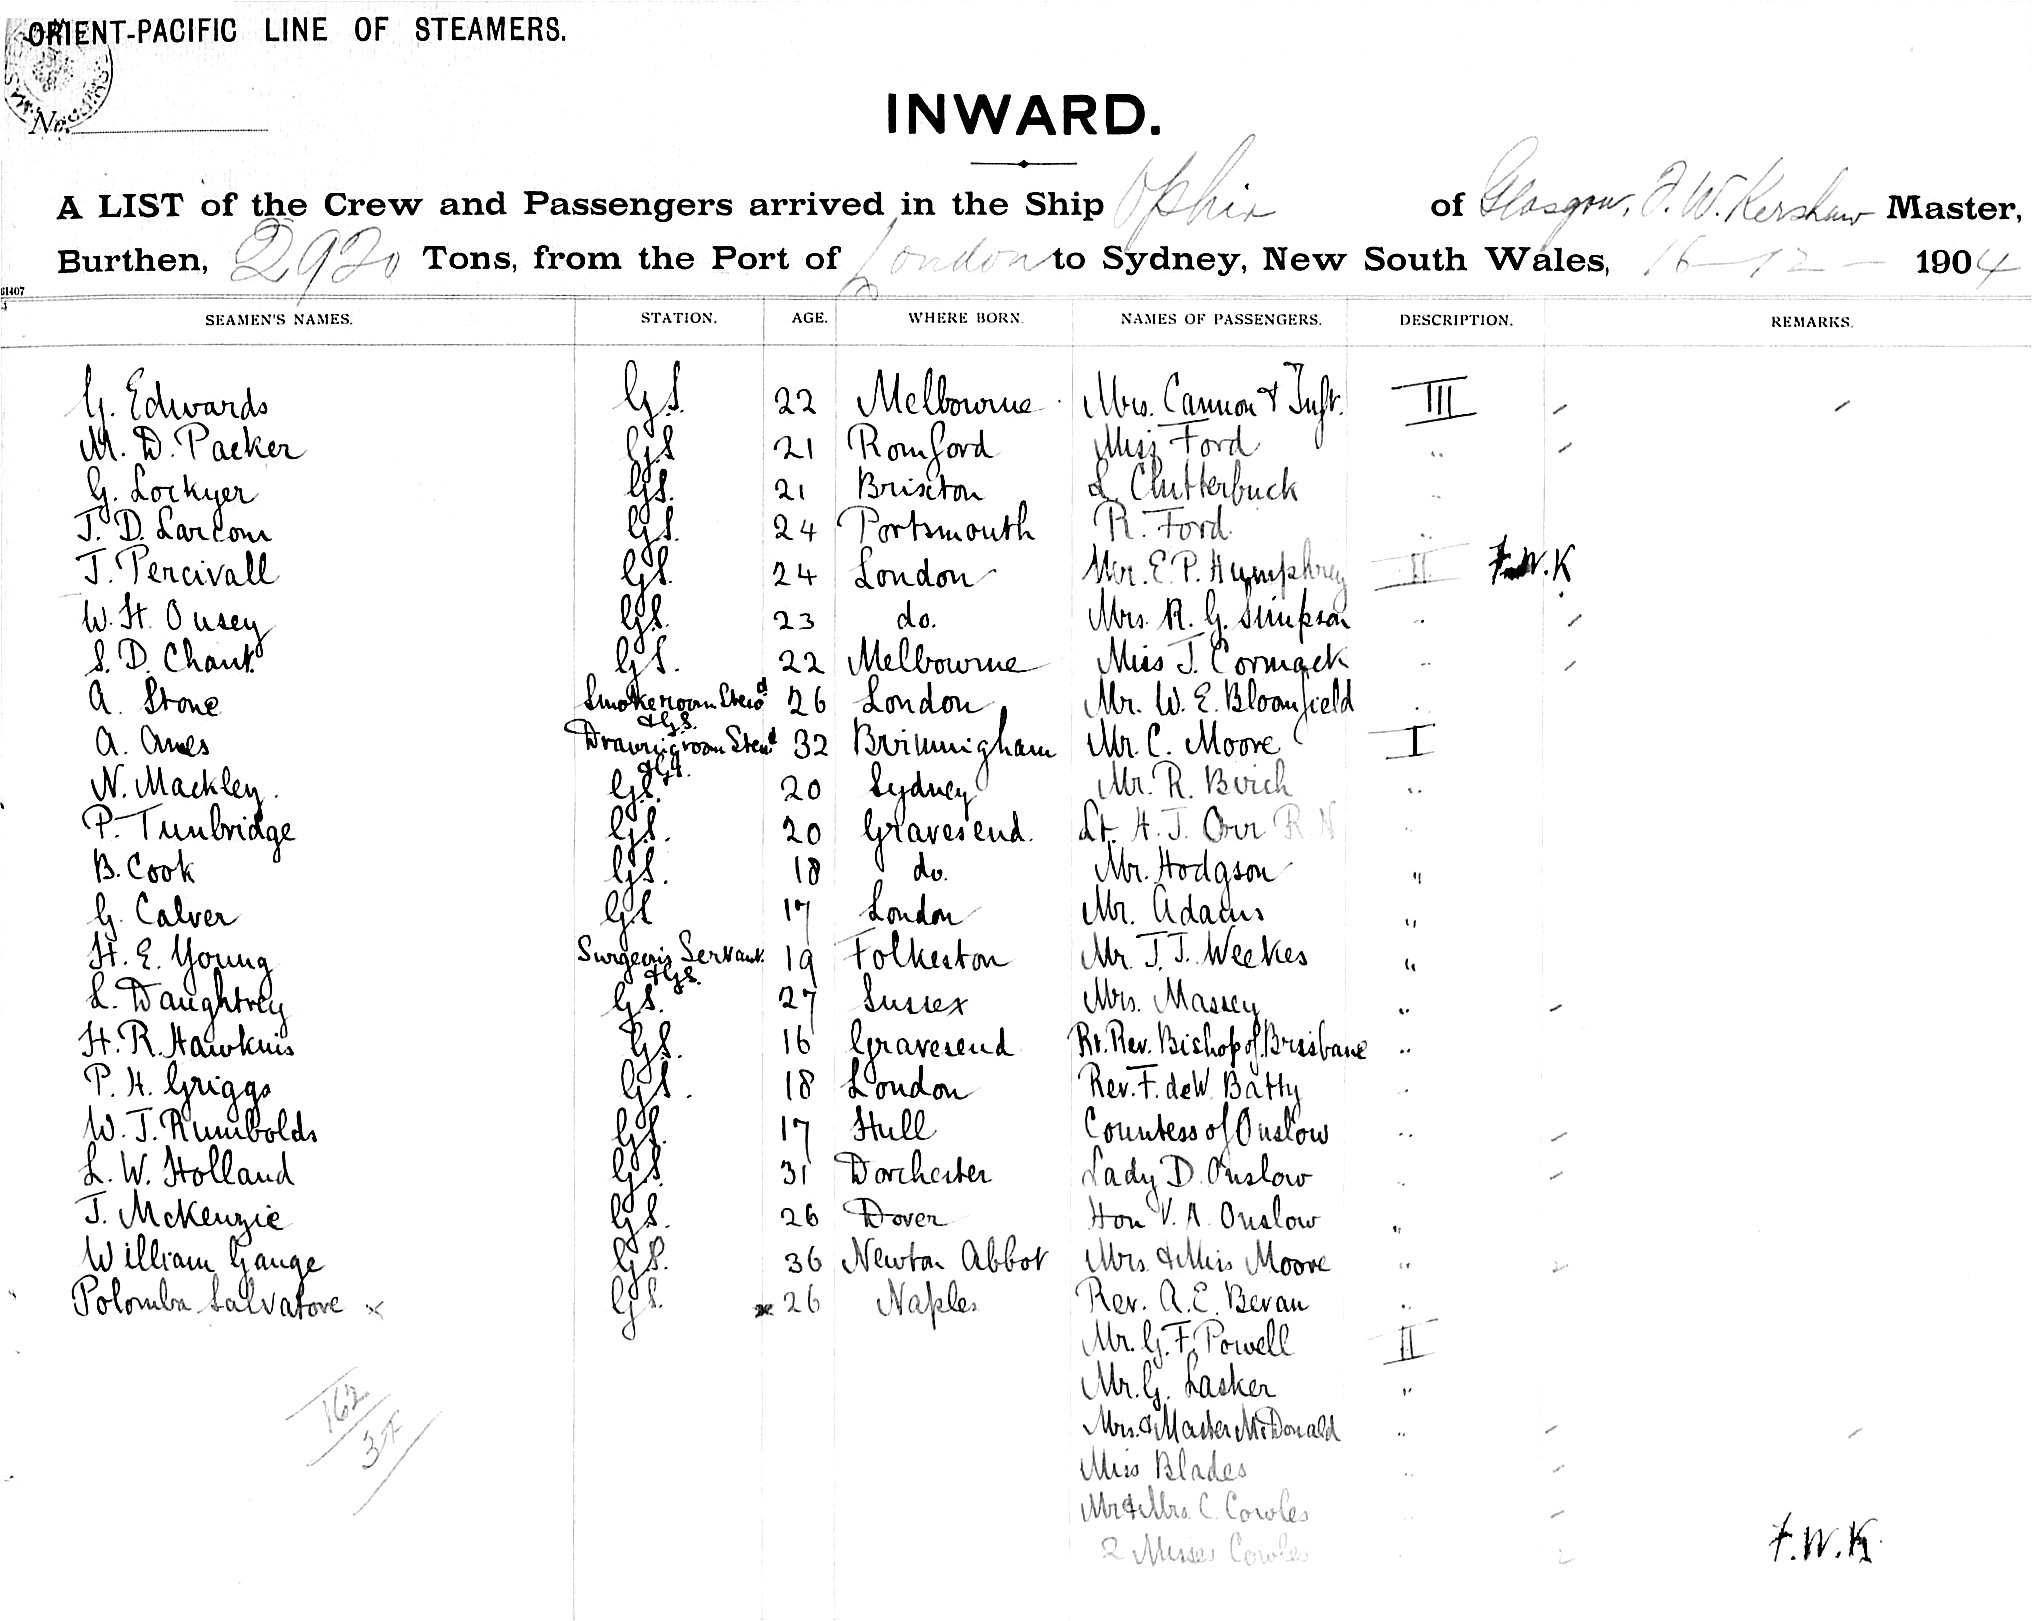 ORIENT-PACIFIC LINE OF STEAMERS.
No.
INWARD.
A LIST of the Crew and Passengers arrived in the Ship Ophir of Glasgow, F. W. Kershaw Master,
Burthen, 2920 Tons, from the Port of London to Sydney, New South Wales, 16-12- 1904
61407
SEAMEN'S NAMES. STATION. AGE. WHERE BORN. NAMES OF PASSENGERS. DESCRIPTION. REMARKS.
G. Edwards G.S. 22 Melbourne Mrs. Cannon & Inft. III
M. D. Packer G.S 21 Romford Miss Ford "
G. Lockyer G.S. 21 Brixton L. Clutterbuck "
J. D. Larcom G.S. 24 Portsmouth R. Ford "
J. Percivall G.S. 24 London Mr. E. P. Humphrey II F.W.K
W. H. Ousey G.S. 23 do. Mrs. R. G. Simpson "
S. D. Chant. G.S. 22 Melbourne Miss J. Cormack "
A. Stone Smokeroom Stewd & G.S. 26 London Mr. W. E. Bloomfield "
A. Ames Drawingroom Stewd & G.S. 32 Birmingham Mr. C. Moore I
N. Mackley. G.S. 20 Sydney Mr. R. Birch "
P. Tunbridge G.S. 20 Gravesend. Lt. H. J. Orr R N "
B. Cook G.S. 18 do. Mr. Hodgson "
G. Calver G.S 17 London Mr. Adams "
H. E. Young Surgeon's Servant. & G.S. 19 Folkeston Mr. J. J. Weekes "
L. Daughtrey G.S. 27 Sussex Mrs. Massey "
H. R. Hawkins G.S. 16 Gravesend Rt. Rev. Bishop of Brisbane "
P. H. Griggs G.S. 18 London Rev. F. de W. Batty "
W. J. Rumbolds G.S. 17 Hull Countess of Onslow "
L. W. Holland G.S. 31 Dorchester Lady D. Onslow "
J. McKenzie G.S. 26 Dover Hon V. A. Onslow "
William Gange G.S. 36 Newton Abbot Mrs. & Miss Moore "
Polomba Salvatore x G.S. x 26 Naples Rev. A. E. Bevan "
Mr. G. F. Powell II
Mr. G. Lasker "
Mrs. & Master McDonald "
Miss Blades "
Mr & Mrs. C. Cowles
2 Misses Cowles
162
F.W.K.